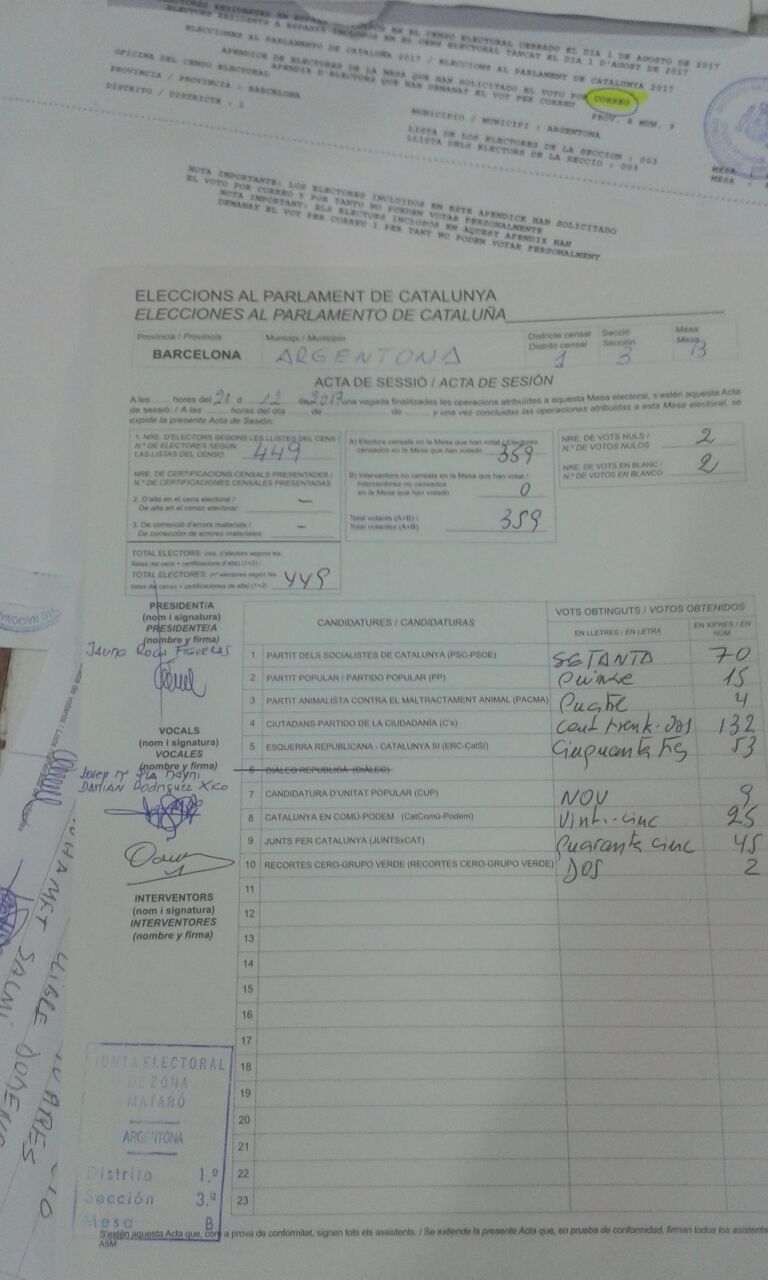 ELECTORES RESIDENTES EN ESPAÑA INCLUIDOS EN EL CENSO ELECTORAL CERRADO EL DIA 1 DE AGOSTO DE 2017
ELECTORS RESIDENTS A ESPANYA INCLOSOS EN EL CENS ELECTORAL TANCAT EL DIA 1 D'AGOST DE 2017
ELECCIONES AL PARLAMENTO DE CATALUÑA 2017 / ELECCIONS AL PARLAMENT DE CATALUNYA 2017
APENDICE DE ELECTORES DE LA MESA QUE HAN SOLICITADO EL VOTO POR CORREO
APENDIX D'ELECTORS QUE HAN DEMANAT EL VOT PER CORREU
OFICINA DEL CENSO ELECTORAL
PROV. 8 MUN. 9
PROVINCIA / PROVINCIA : BARCELONA
MUNICIPIO / MUNICIPI : ARGENTONA
DISTRITO / DISTRICTE : 1
LISTA DE LOS ELECTORES DE LA SECCION : 003
LLISTA DELS ELECTORS DE LA SECCIO : 003
MESA
MESA
NOTA IMPORTANTE: LOS ELECTORES INCLUIDOS EN ESTE APENDICE HAN SOLICITADO
EL VOTO POR CORREO Y POR TANTO NO PUEDEN VOTAR PERSONALMENTE
NOTA IMPORTANT: ELS ELECTORS INCLOSOS EN AQUEST APENDIX HAN
DEMANAT EL VOT PER CORREU I PER TANT NO PODEN VOTAR PERSONALMENT
ELECCIONS AL PARLAMENT DE CATALUNYA
ELECCIONES AL PARLAMENTO DE CATALUÑA
Província / Provincia Municipi / Municipio Districte censal Secció Mesa
BARCELONA ARGENTONA Distrito censal 1 Sección 3 Mesa B
ACTA DE SESSIÓ / ACTA DE SESIÓN
A les ...... hores del 21 d 12 de 2017 una vegada finalitzades les operacions atribuïdes a aquesta Mesa electoral, s'estén aquesta Acta
de sessió. / A las ........ horas del día ...... de ........ de ......, y una vez concluidas las operaciones atribuidas a esta Mesa electoral, se
expide la presente Acta de Sesión.
1. NRE. D'ELECTORS SEGONS LES LLISTES DEL CENS /
N.º DE ELECTORES SEGÚN
LAS LISTAS DEL CENSO 449
NRE. DE CERTIFICACIONS CENSALS PRESENTADES /
N.º DE CERTIFICACIONES CENSALES PRESENTADAS
2. D'alta en el cens electoral /
De alta en el censo electoral: –
3. De correcció d'errors materials /
De corrección de errores materiales: –
TOTAL ELECTORS: (nre. d'electors segons les
llistes del cens + certificacions d'alta) (1+2) /
TOTAL ELECTORES: (nº electores según las
listas del censo + certificaciones de alta) (1+2) 449
A) Electors censats en la Mesa que han votat / Electores
censados en la Mesa que han votado 359
B) Interventors no censats en la Mesa que han votat /
Interventores no censados
en la Mesa que han votado 0
Total votants (A+B) /
Total votantes (A+B) 359
NRE. DE VOTS NULS /
N.º DE VOTOS NULOS 2
NRE. DE VOTS EN BLANC /
N.º DE VOTOS EN BLANCO 2
PRESIDENT/A
(nom i signatura)
PRESIDENTE/A
(nombre y firma)
JAUME ROCA FIGUERAS
VOCALS
(nom i signatura)
VOCALES
(nombre y firma)
DAMIAN Rodriguez Xico
INTERVENTORS
(nom i signatura)
INTERVENTORES
(nombre y firma)
CANDIDATURES / CANDIDATURAS VOTS OBTINGUTS / VOTOS OBTENIDOS
EN LLETRES / EN LETRA EN XIFRES / EN NÚM.
1 PARTIT DELS SOCIALISTES DE CATALUNYA (PSC-PSOE) SETANTA 70
2 PARTIT POPULAR / PARTIDO POPULAR (PP) Quinze 15
3 PARTIT ANIMALISTA CONTRA EL MALTRACTAMENT ANIMAL (PACMA) Quatre 4
4 CIUTADANS-PARTIDO DE LA CIUDADANÍA (C's) Cent trenta-dos 132
5 ESQUERRA REPUBLICANA - CATALUNYA SI (ERC-CatSI) Cinquanta tres 53
6 DIÀLEG REPUBLICÀ (DIÀLEG)
7 CANDIDATURA D'UNITAT POPULAR (CUP) NOU 9
8 CATALUNYA EN COMÚ-PODEM (CatComú-Podem) Vint-i-cinc 25
9 JUNTS PER CATALUNYA (JUNTSxCAT) Quaranta cinc 45
10 RECORTES CERO-GRUPO VERDE (RECORTES CERO-GRUPO VERDE) DOS 2
11
12
13
14
15
16
17
18
19
20
21
22
23
JUNTA ELECTORAL
DE ZONA
MATARÓ
ARGENTONA
Distrito 1.º
Sección 3.ª
Mesa B
S'estén aquesta Acta que, com a prova de conformitat, signen tots els assistents. / Se extiende la presente Acta que, en prueba de conformidad, firman todos los asistente
SALMI